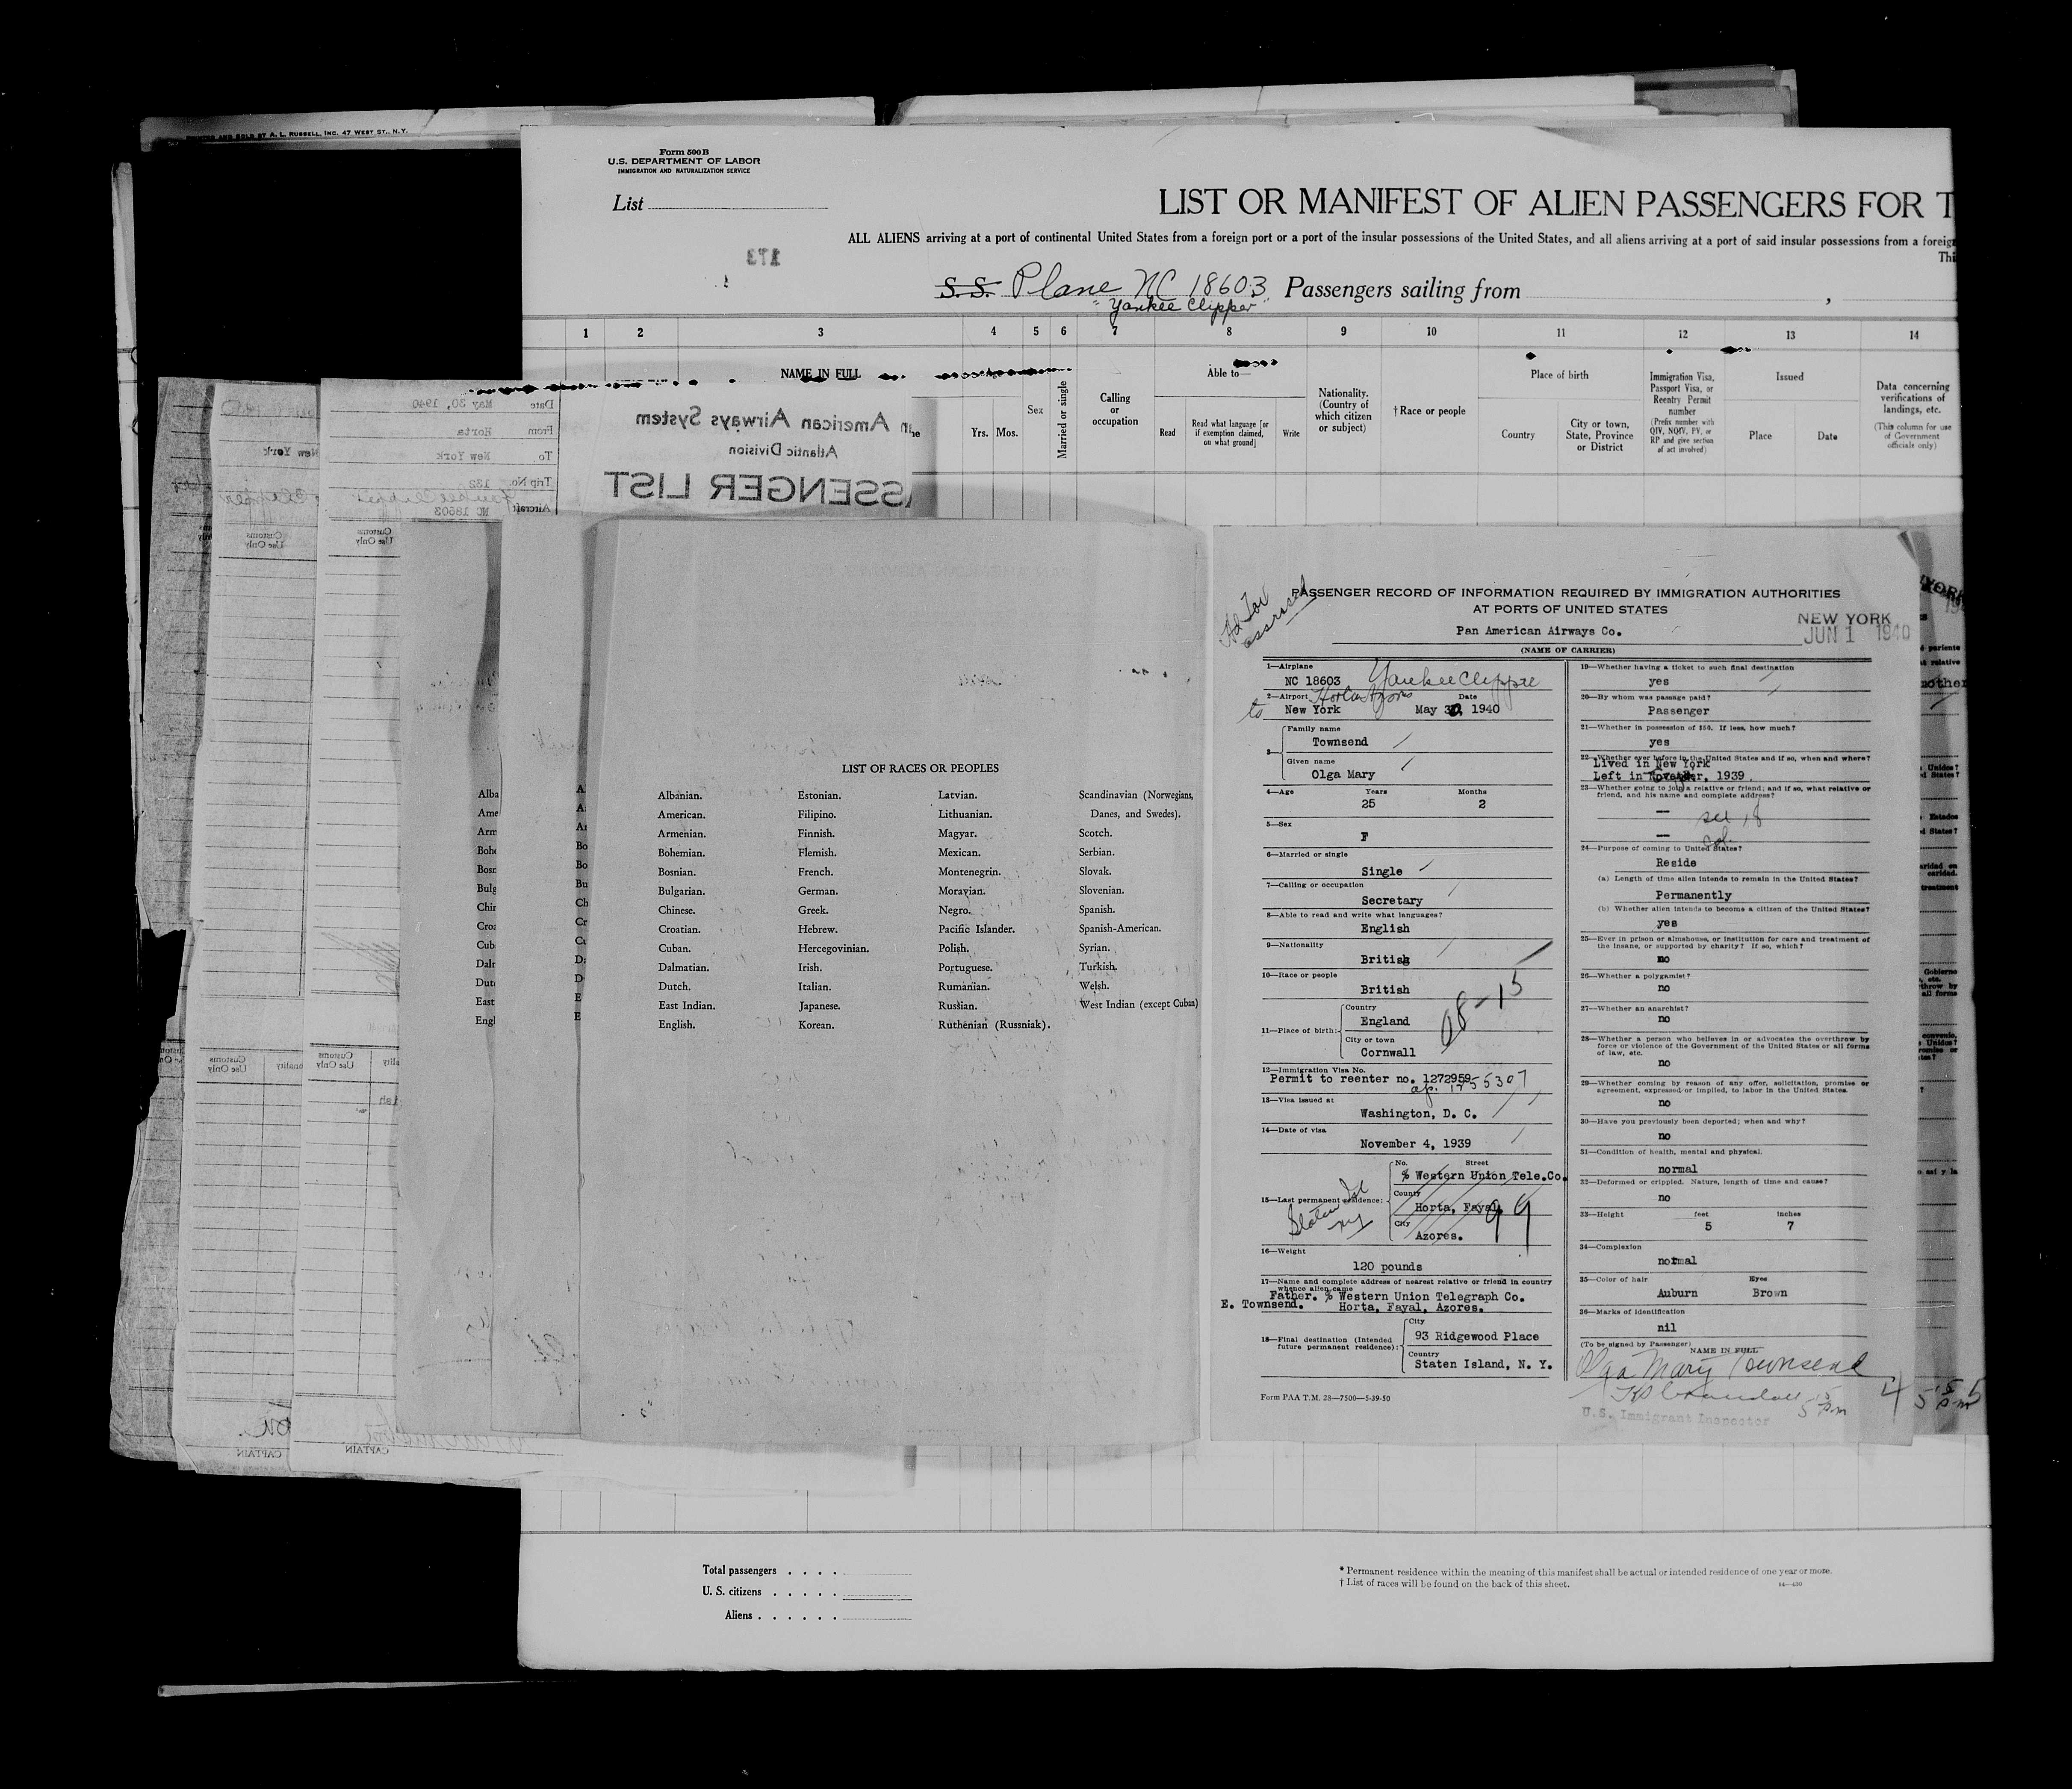 PRINTED AND SOLD BY A. L. RUSSELL, INC. 47 WEST ST., N.Y.
Form 500 B
U.S. DEPARTMENT OF LABOR
IMMIGRATION AND NATURALIZATION SERVICE
List
LIST OR MANIFEST OF ALIEN PASSENGERS FOR T
ALL ALIENS arriving at a port of continental United States from a foreign port or a port of the insular possessions of the United States, and all aliens arriving at a port of said insular possessions from a foreign
Thi
173
S.S. Plane NC 18603 Passengers sailing from ,
"Yankee Clipper"
1 2 3 4 5 6 7 8 9 10 11 12 13 14
NAME IN FULL
Age
Yrs. Mos.
Sex
Married or single
Calling or occupation
Able to—
Read
Read what language [or if exemption claimed, on what ground]
Write
Nationality. (Country of which citizen or subject)
† Race or people
Place of birth
Country
City or town, State, Province or District
Immigration Visa, Passport Visa, or Reentry Permit number
(Prefix number with QIV, NQIV, PV, or RP and give section of act involved)
Issued
Place
Date
Data concerning verifications of landings, etc.
(This column for use of Government officials only)
American Airways System
Atlantic Division
SSENGER LIST
Date May 30, 1940
From Horta
To New York
Trip No. 132
Aircraft NC 18603
Yankee Clipper
Customs Use Only
New York
Customs Use Only
Customs Use Only
Customs Use Only
CAPTAIN
CAPTAIN
LIST OF RACES OR PEOPLES
Albanian.
American.
Armenian.
Bohemian.
Bosnian.
Bulgarian.
Chinese.
Croatian.
Cuban.
Dalmatian.
Dutch.
East Indian.
English.
Estonian.
Filipino.
Finnish.
Flemish.
French.
German.
Greek.
Hebrew.
Hercegovinian.
Irish.
Italian.
Japanese.
Korean.
Latvian.
Lithuanian.
Magyar.
Mexican.
Montenegrin.
Moravian.
Negro.
Pacific Islander.
Polish.
Portuguese.
Rumanian.
Russian.
Ruthenian (Russniak).
Scandinavian (Norwegians,
Danes, and Swedes).
Scotch.
Serbian.
Slovak.
Slovenian.
Spanish.
Spanish-American.
Syrian.
Turkish.
Welsh.
West Indian (except Cuban)
PASSENGER RECORD OF INFORMATION REQUIRED BY IMMIGRATION AUTHORITIES
AT PORTS OF UNITED STATES
Pan American Airways Co.
(NAME OF CARRIER)
NEW YORK
JUN 1 1940
1—Airplane
NC 18603 Yankee Clipper
2—Airport Horta Azores Date
to New York May 30, 1940
3—
Family name
Townsend
Given name
Olga Mary
4—Age Years Months
25 2
5—Sex
F
6—Married or single
Single
7—Calling or occupation
Secretary
8—Able to read and write what languages?
English
9—Nationality
British
10—Race or people
British
11—Place of birth:
Country
England
City or town
Cornwall
08-15
12—Immigration Visa No.
Permit to reenter no. 1272959
ap. 1755307
13—Visa issued at
Washington, D. C.
14—Date of visa
November 4, 1939
15—Last permanent residence:
No. Street
% Western Union Tele.Co.
County
Horta, Fayal
City
Azores.
Staten Isl
NY
99
16—Weight
120 pounds
17—Name and complete address of nearest relative or friend in country
whence alien came
Father. % Western Union Telegraph Co.
E. Townsend. Horta, Fayal, Azores.
18—Final destination (Intended
future permanent residence):
City
93 Ridgewood Place
Country
Staten Island, N. Y.
Form PAA T.M. 28—7500—5-39-50
19—Whether having a ticket to such final destination
yes
20—By whom was passage paid?
Passenger
21—Whether in possession of $50. If less, how much?
yes
22—Whether ever before in the United States and if so, when and where?
Lived in New York
Left in November, 1939.
23—Whether going to join a relative or friend; and if so, what relative or
friend, and his name and complete address?
—
see 18
—
col.
24—Purpose of coming to United States?
Reside
(a) Length of time alien intends to remain in the United States?
Permanently
(b) Whether alien intends to become a citizen of the United States?
yes
25—Ever in prison or almshouse, or institution for care and treatment of
the insane, or supported by charity? If so, which?
no
26—Whether a polygamist?
no
27—Whether an anarchist?
no
28—Whether a person who believes in or advocates the overthrow by
force or violence of the Government of the United States or all forms
of law, etc.
no
29—Whether coming by reason of any offer, solicitation, promise or
agreement, expressed or implied, to labor in the United States.
no
30—Have you previously been deported; when and why?
no
31—Condition of health, mental and physical.
normal
32—Deformed or crippled. Nature, length of time and cause?
no
33—Height feet inches
5 7
34—Complexion
normal
35—Color of hair Eyes
Auburn Brown
36—Marks of identification
nil
(To be signed by Passenger)
NAME IN FULL
Olga Mary Townsend
U.S. Immigrant Inspector
Total passengers
U. S. citizens
Aliens
* Permanent residence within the meaning of this manifest shall be actual or intended residence of one year or more.
† List of races will be found on the back of this sheet.
14—430